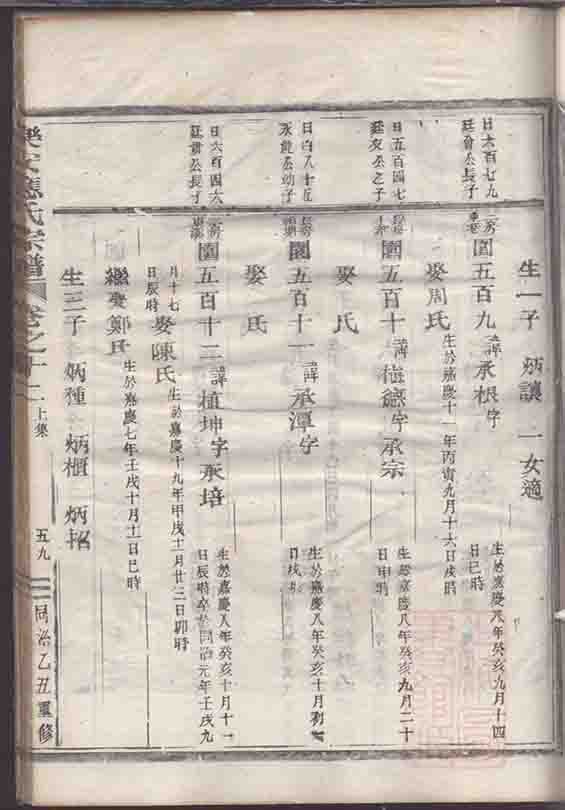 生一子 炳讓 一女適
日六百七九
廷會公長子
園五百九 諱承根字
生於嘉慶八年癸亥九月十四
日巳時
娶周氏 生於嘉慶十一年丙寅九月十六日戌時
日五百四七
廷友公之子
園五百十 諱樹德字承宗
生於嘉慶八年癸亥九月二十
日申時
娶 氏
日四八十五
永能公幼子
園五百十一 諱承潭字
生於嘉慶八年癸亥十月初
日戌時
娶 氏
日六百四六
廷會公長子
園五百十二 諱植坤字承培
生於嘉慶八年癸亥十月十一
日辰時卒於同治元年壬戌九
月十七
日辰時
娶陳氏 生於嘉慶十九年甲戌十月廿三日卯時
繼娶鄭氏 生於嘉慶七年壬戌十月十一日巳時
生三子 炳種 炳櫃 炳招
樂安應氏宗譜 卷之十二上集 五九 同治乙丑重修